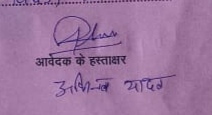 आवेदक के हस्ताक्षर
अभिनव यादव